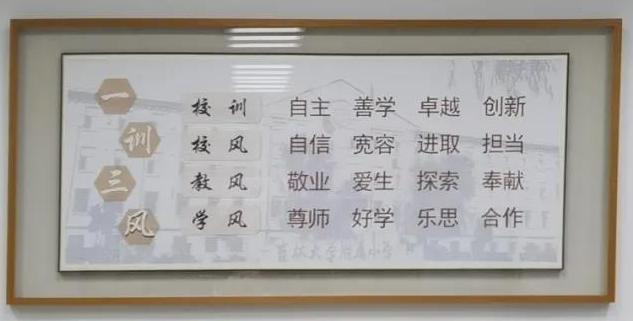 一训三风
校训 自主 善学 卓越 创新
校风 自信 宽容 进取 担当
教风 敬业 爱生 探索 奉献
学风 尊师 好学 乐思 合作
吉林大学附属小学